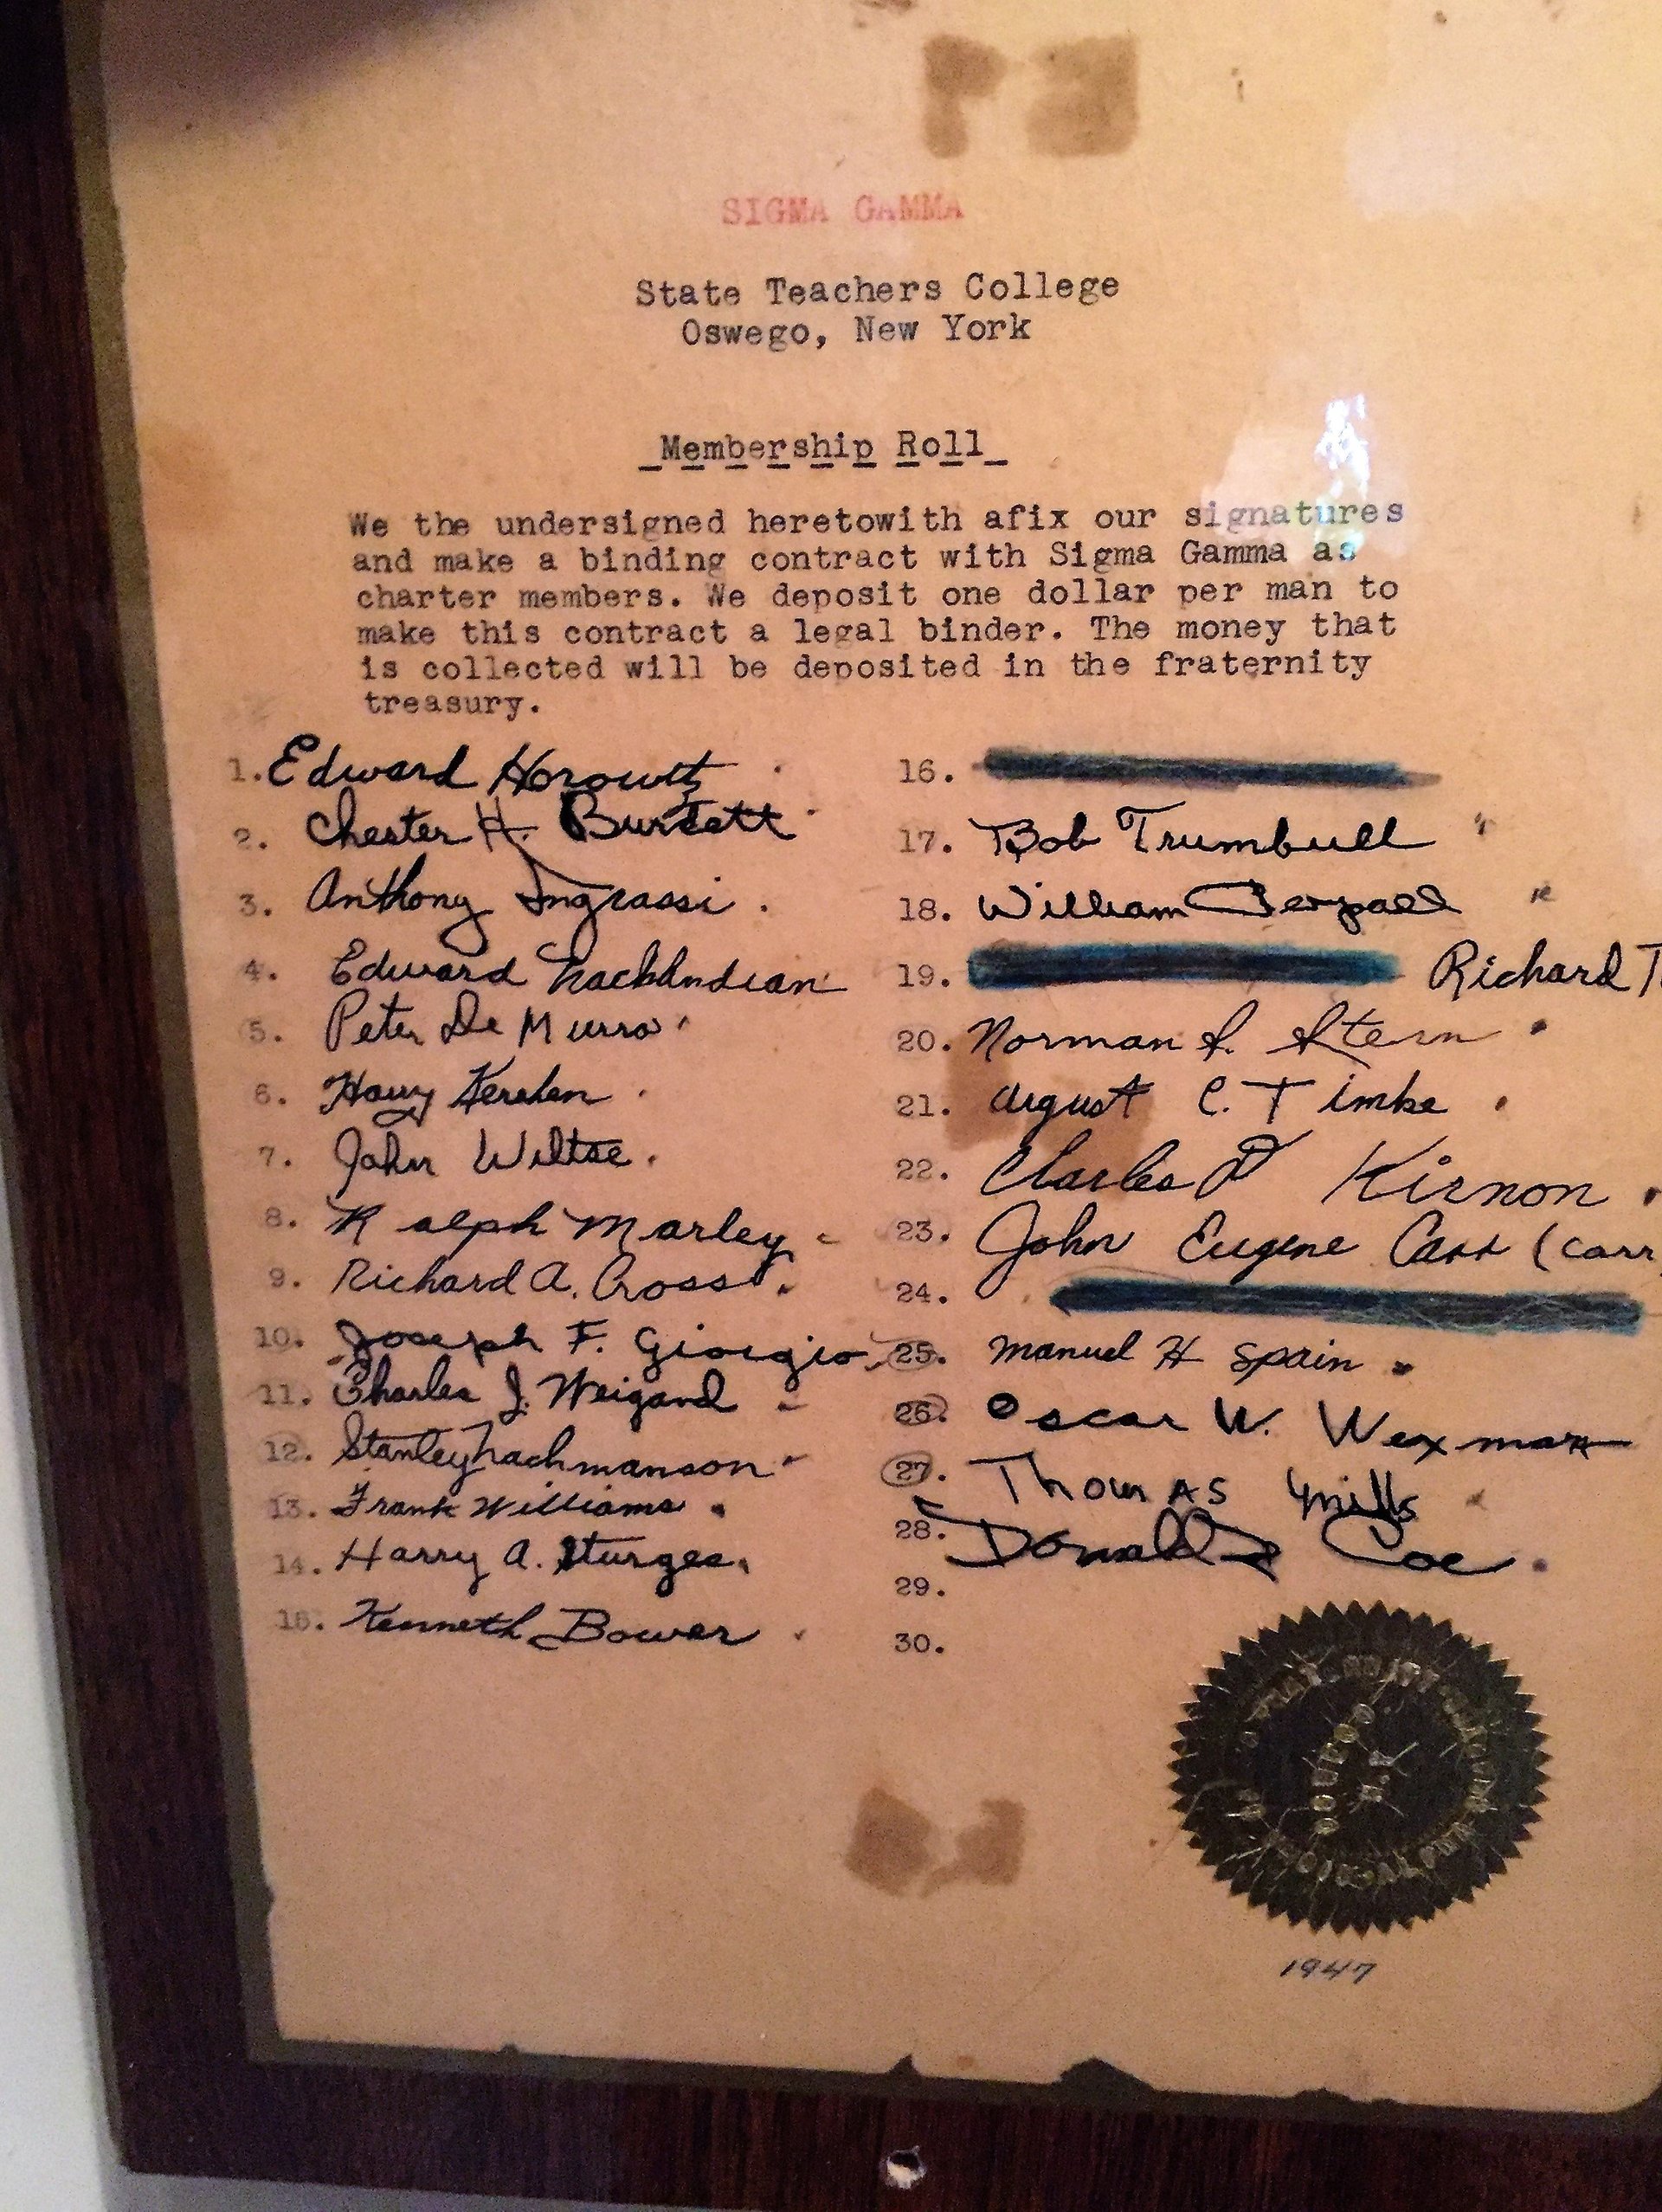 SIGMA GAMMA
State Teachers College
Oswego, New York
Membership Roll
We the undersigned heretowith afix our signatures
and make a binding contract with Sigma Gamma as
charter members. We deposit one dollar per man to
make this contract a legal binder. The money that
is collected will be deposited in the fraternity
treasury.
1. Edward Horowitz
2. Chester H. Burdett
3. Anthony Ingrassi
4. Edward
5. Peter De Murro
6. Harry Kershen
7. John Wiltse
8. Ralph Marley
9. Richard A. Cross
10. Joseph F. Giorgio
11. Charles J. Weigand
12. Stanley Nachmanson
13. Frank Williams
14. Harry A. Sturges
15. Kenneth Bower
16.
17. Bob Trumbull
18. William
19. Richard T.
20. Norman S. Stern
21. August C. Timke
22. Charles D Kirnon
23. John Eugene Carr (Carr
24.
25. Manuel H Spain
26. Oscar W. Wexman
27. Thomas Mills
28. Donald Coe
29.
30.
1947